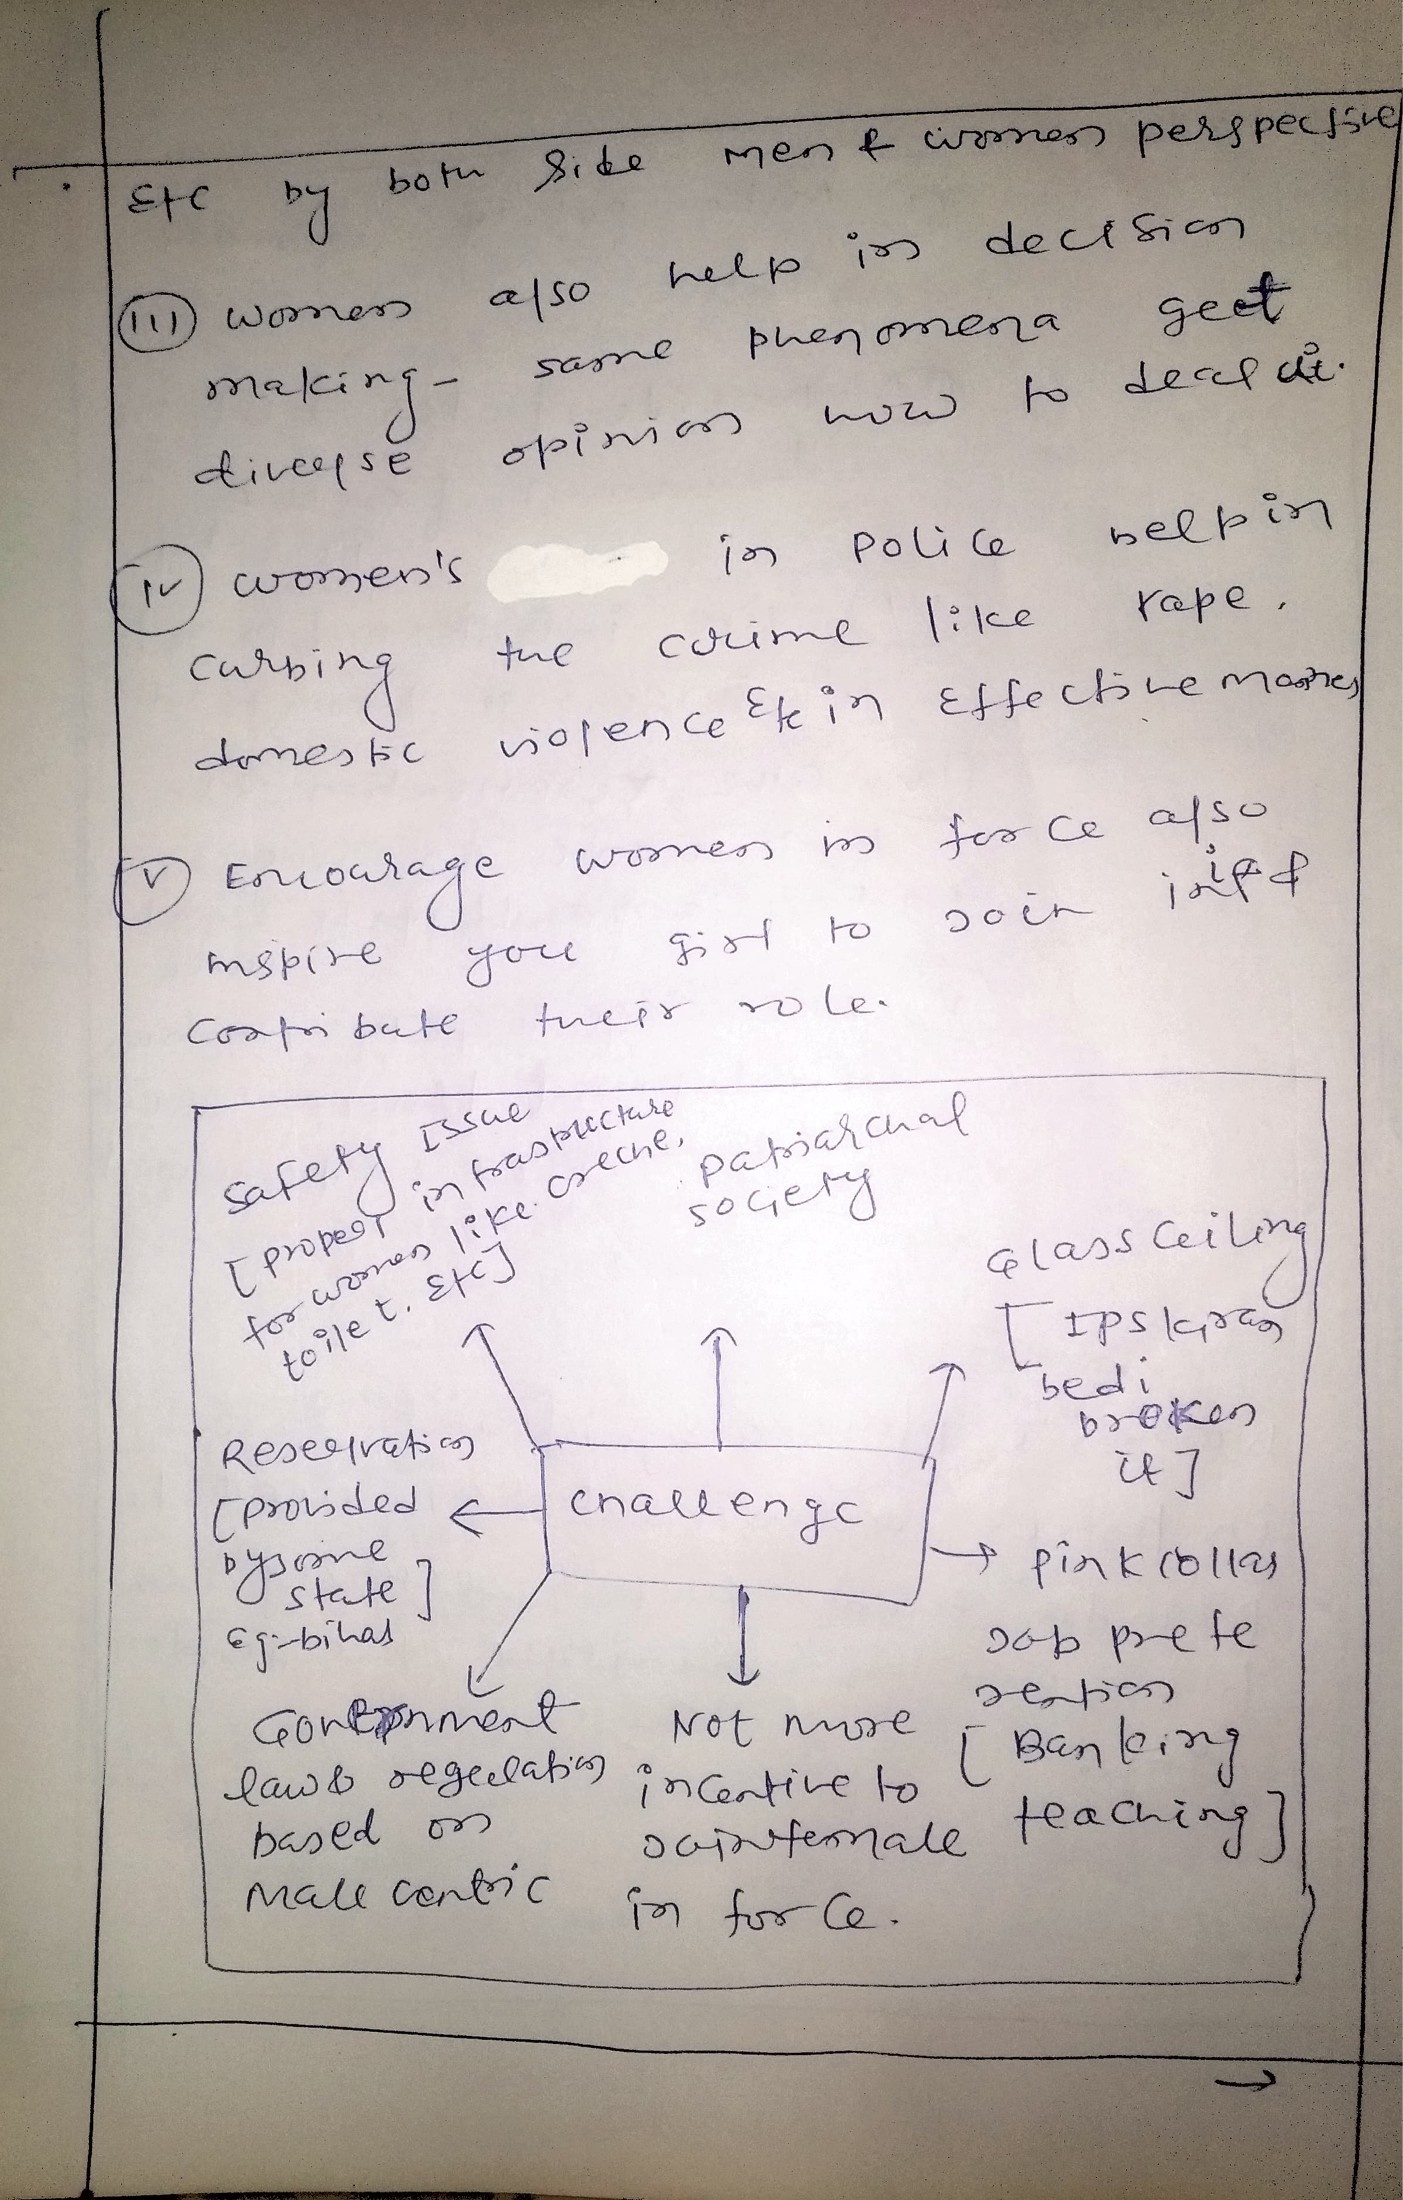 Etc by both side men & women perspective
(iii) women also help in decision
making - same phenomena get
diverse opinion how to deal it.
(iv) women's in police help in
curbing the crime like rape,
domestic violence Etc in Effective manner
(v) Encourage women in force also
inspire you girl to join in &
contribute their role.
Safety Issue
[proper infrastructure
for women like creche,
toilet. Etc]
patriarchal
society
Glass ceiling
[IPS kiran
bedi
broken
it]
Reservation
[provided
by some
state]
Eg:- bihar
challenge
pink collar
job prefe
rention
[Banking
teaching]
Government
law & regulation
based on
male centric
Not more
incentive to
join female
in force.